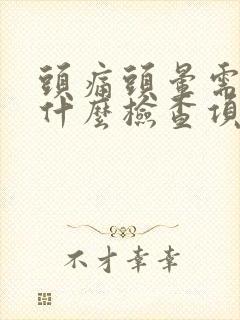 頭痛頭暈需
什麼檢查項
不才幸幸